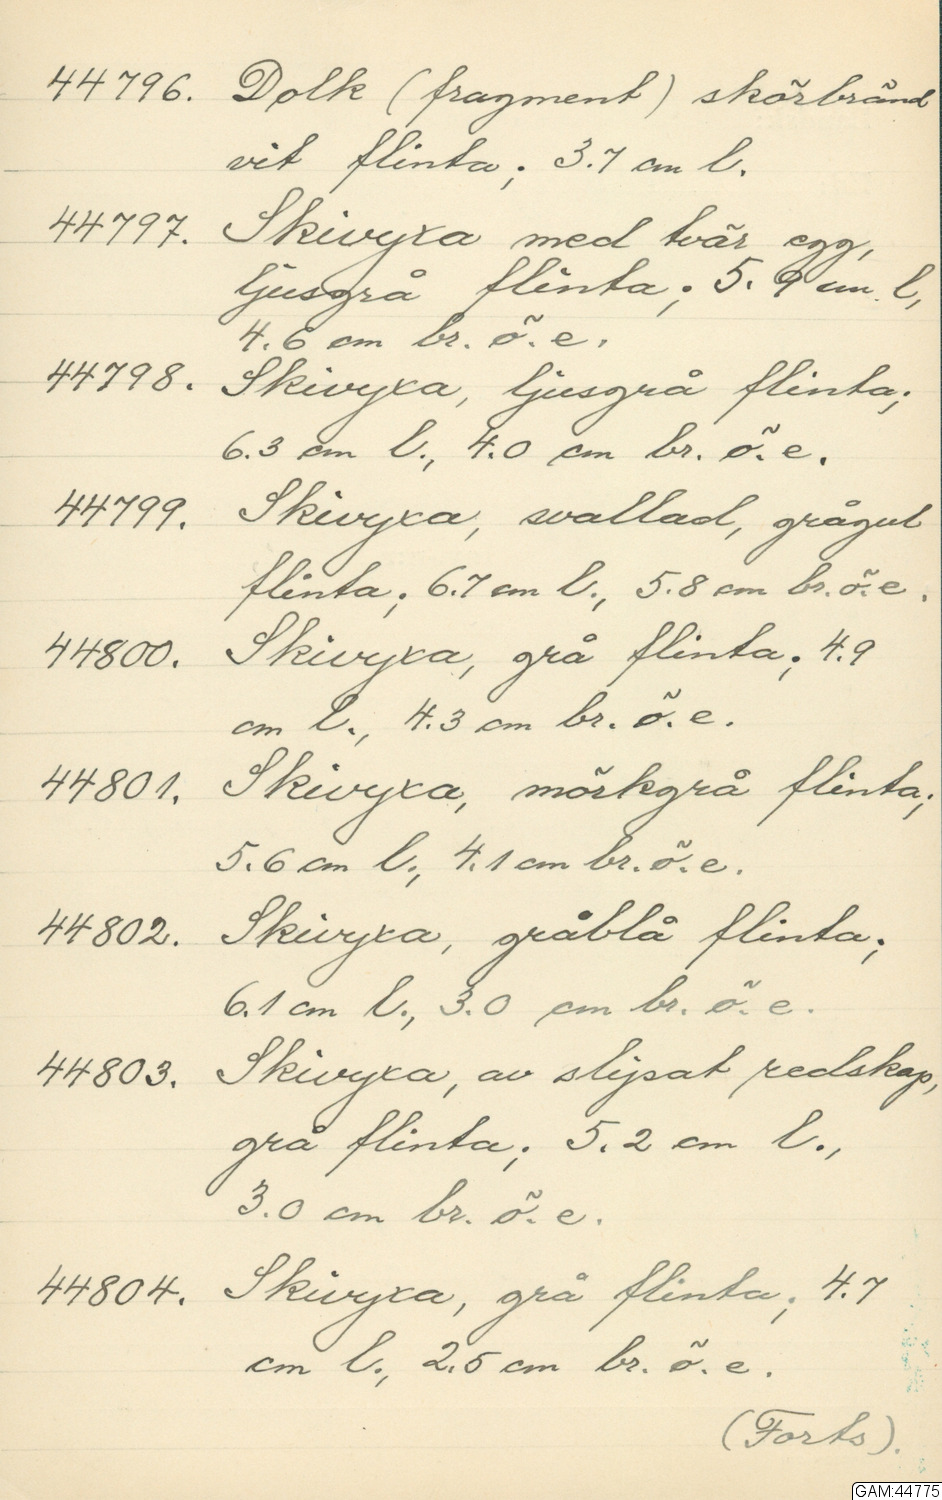 44796. Dolk (fragment) skörbränd
vit flinta; 3.7 cm l.
44797. Skivyxa med tvär egg,
ljusgrå flinta; 5.9 cm l,
4.6 cm br. ö. e.
44798. Skivyxa, ljusgrå flinta;
6.3 cm l., 4.0 cm br. ö. e.
44799. Skivyxa, svallad, grågul
flinta; 6.7 cm l., 5.8 cm br. ö. e.
44800. Skivyxa, grå flinta; 4.9
cm l., 4.3 cm br. ö. e.
44801. Skivyxa, mörkgrå flinta;
5.6 cm l., 4.1 cm br. ö. e.
44802. Skivyxa, gråblå flinta;
6.1 cm l., 3.0 cm br. ö. e.
44803. Skivyxa, av slipat redskap,
grå flinta; 5.2 cm l.,
3.0 cm br. ö. e.
44804. Skivyxa, grå flinta; 4.7
cm l., 2.5 cm br. ö. e.
(Forts).
GAM:44775